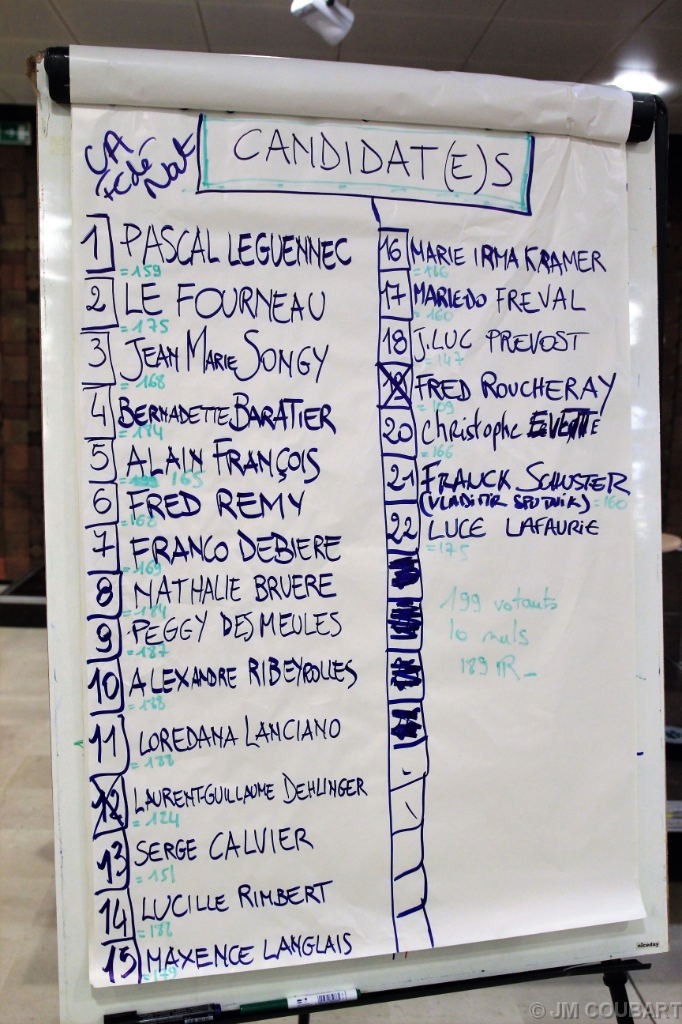 CANDIDAT(E)S
1 PASCAL LEGUENNEC
=159
2 LE FOURNEAU
=175
3 JEAN MARIE SONGY
=168
4 BERNADETTE BARATIER
=184
5 ALAIN FRANÇOIS
165
6 FRED REMY
7 FRANCO DEBIERE
=169
8 NATHALIE BRUERE
=184
9 PEGGY DESMEULES
=187
10 ALEXANDRE RIBEYROLLES
=188
11 LOREDANA LANCIANO
=188
12 LAURENT-GUILLAUME DEHLINGER
=124
13 SERGE CALVIER
=151
14 LUCILLE RIMBERT
=188
15 MAXENCE LANGLAIS
=179
16 MARIE IRMA KRAMER
=186
17 MARIEDO FREVAL
=160
18 J.LUC PREVOST
=147
19 FRED ROUCHERAY
=109
20 Christophe
=166
21 FRANCK SCHUSTER
(VLADIMIR SPUTNIK) =160
22 LUCE LAFAURIE
=175
199 votants
10 nuls
189
nicoday
© JM COUBART